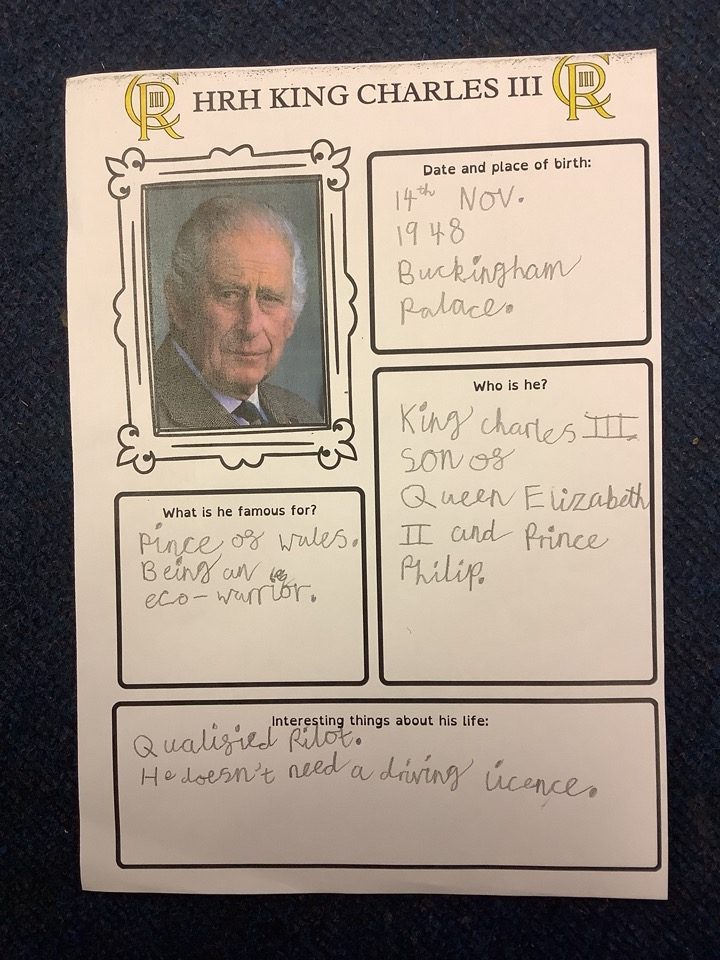 HRH KING CHARLES III
Date and place of birth:
14th Nov.
1948
Buckingham
Palace.
Who is he?
King charles III
son of
Queen Elizabeth
II and Prince
Philip.
What is he famous for?
Pince of wales.
Being an
eco-warrior.
Interesting things about his life:
Qualified Pilot.
He doesn't need a driving licence.